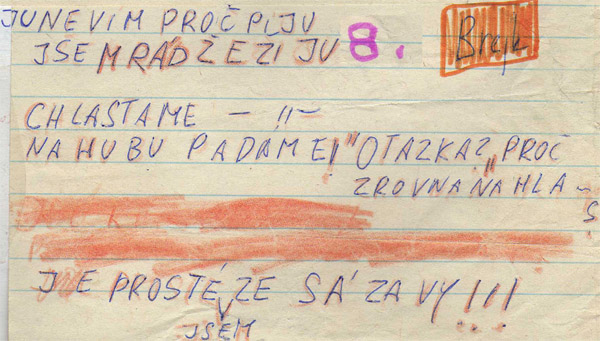 JUNEVIM PROČ PIJU
JSEM RÁD ŽE ZIJU 8. Brejk
CHLASTAME — !! ~
NA HUBU PADAME! "OTAZKAZ" PROČ
ZROVNA NA HLA -
S
JE PROSTĚ ZE SÁZAVY!!!
JSEM